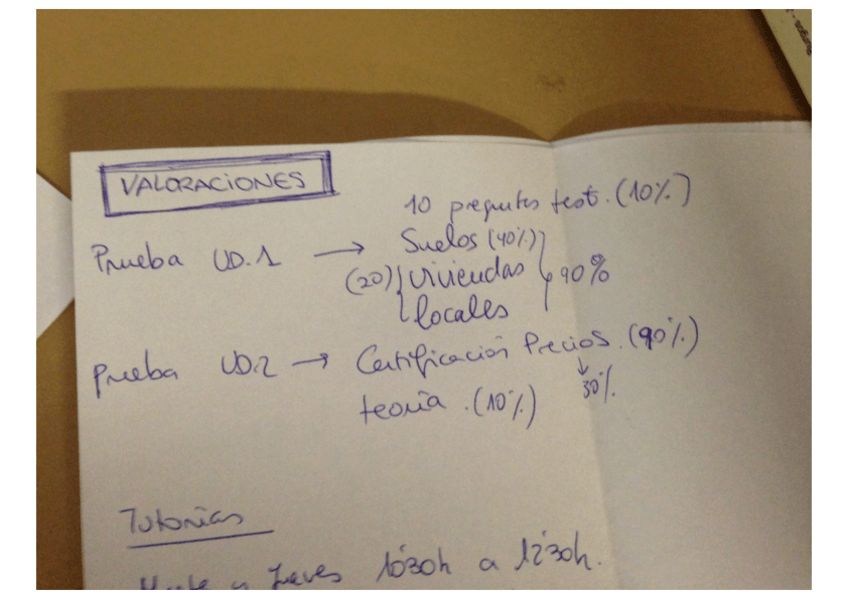 VALORACIONES
10 preguntas test. (10%)
Prueba UD.1 → Suelos (40%)
(20) viviendas 90%
locales
Prueba UD.2 → Certificación Precios. (90%)
30%
teoría. (10%)
Tutorías
y Jueves 10'30h a 12'30h.